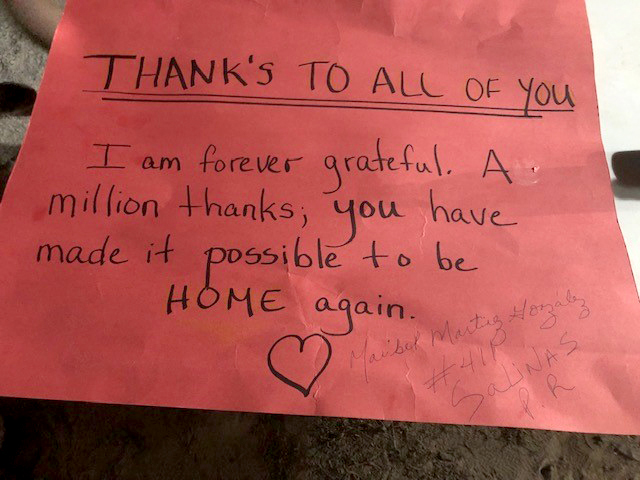 THANK'S TO ALL OF YOU
I am forever grateful. A
million thanks; you have
made it possible to be
HOME again.
Marisol Martez González
#41P
SALINAS
PR